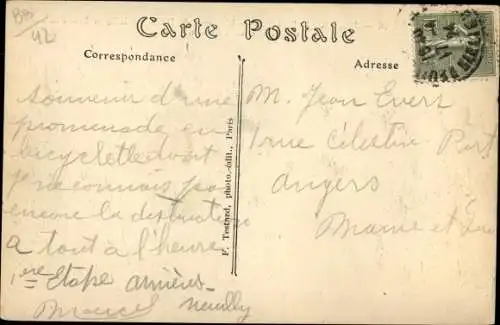 Bon
42
Carte Postale
Correspondance
Adresse
F. Testard, photo.-édit., Paris
souvenir d'une
promenade en
bicyclette dont
je ne connais pas
encore la destination
a tout à l'heure
1ère Etape Asnières-
Marcel Neuilly
M. Jean Evers
1 rue Célestin Port
Angers
Maine et Loire